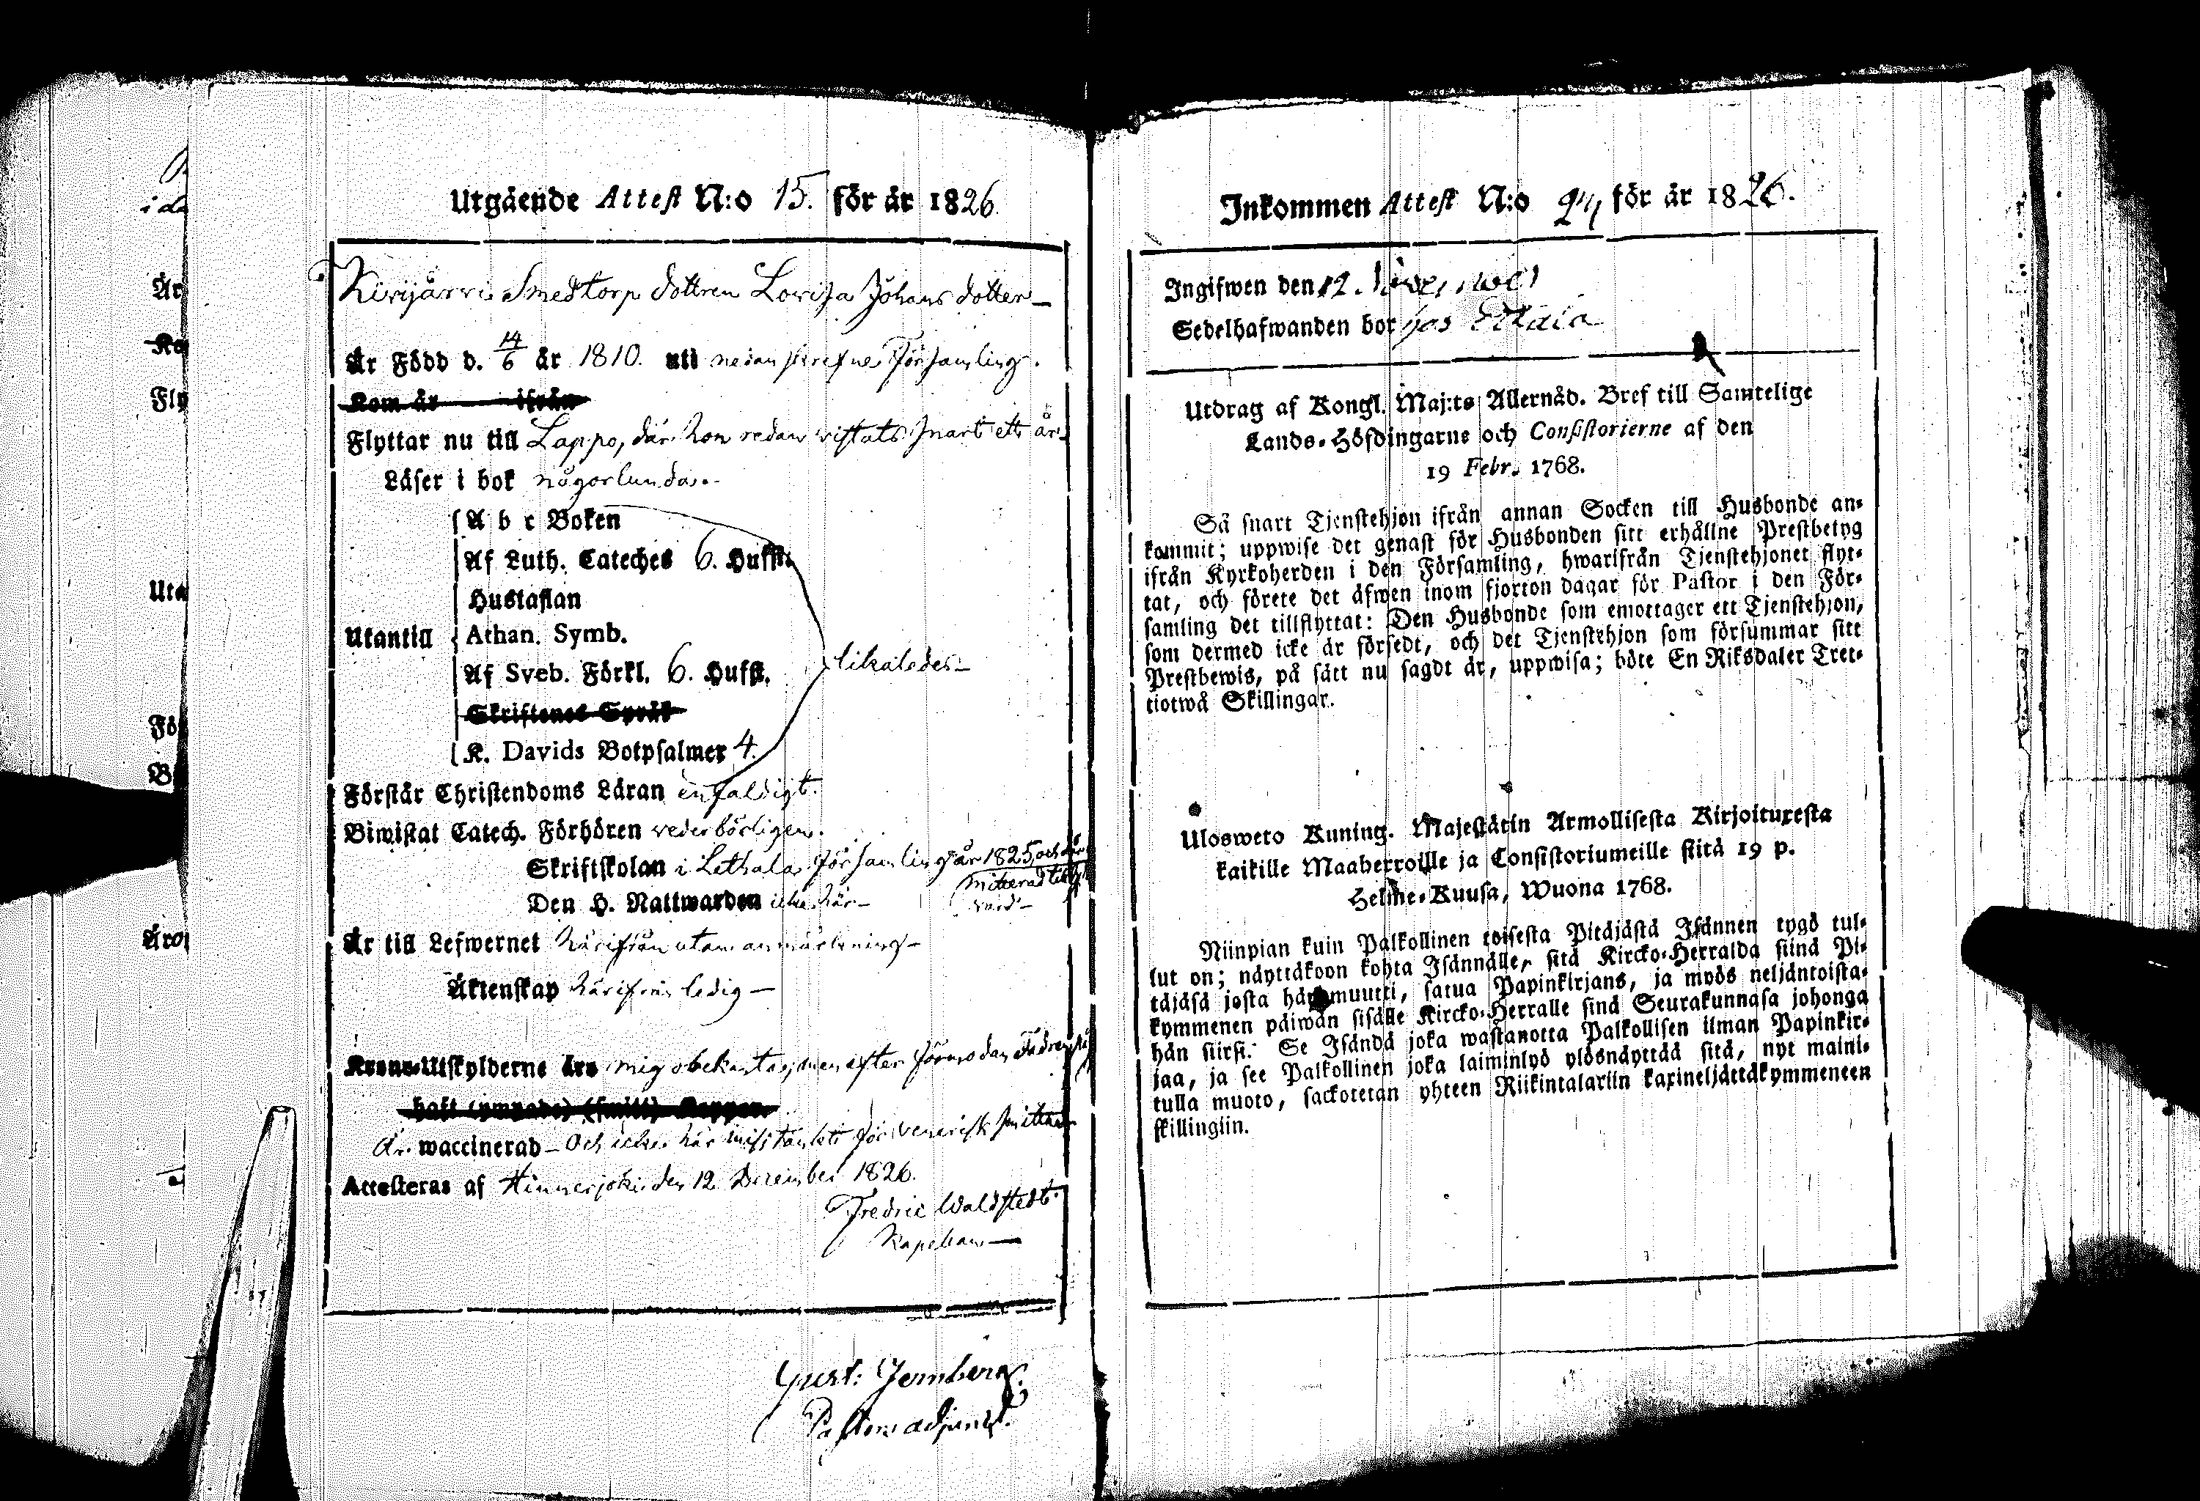 Utgående Attest N:o 15. för år 1826
Kirijärvi Smedtorp dottren Lovisa Johans dotter
Är Född d. 14/6 år 1810. uti nedanskrefne Församling.
Kom år ifrån
Flyttar nu till Lappo, där hon redan vistats snart ett år
Läser i bok någorlunda.
A b c Boken
Af Luth. Cateches 6. Hufst.
Hustaflan
Utantill Athan. Symb.
likaledes
Af Sveb. Förkl. 6. Hufst.
Skriftenes Språk
K. Davids Botpsalmer 4.
Förstår Christendoms Läran enfaldigt.
Biwistat Catech. Förhören vederbörligen.
Skriftskolan i Lethala församling år 1825 och där
Den H. Nattwarden icke här
Är till Lefwernet härifrån utan anmärkning
Äktenskap härifrån ledig
Krono-Utskylderne äro mig obekanta, men efter förmodan
haft (ympade) (smitt) Koppor.
är waccinerad - Och icke här misstänkt för venerisk smitta
Attesteras af Hinnerjoki den 12 December 1826.
Fredric Waldstedt
Kapellan
Gust: Jernberg.
Pastors adjunct.
Inkommen Attest N:o för år 1826.
Ingifwen den 12.
Sedelhafwanden bor hos
Utdrag af Kongl. Maj:ts Allernåd. Bref till Samtelige
Lands-Höfdingarne och Consistorierne af den
19 Febr. 1768.
Så snart Tjenstehjon ifrån annan Socken till Husbonde an-
kommit; uppwise det genast för Husbonden sitt erhållne Prestbetyg
ifrån Kyrkoherden i den Församling, hwarifrån Tjenstehjonet flyt-
tat, och förete det äfwen inom fjorton dagar för Pastor i den För-
samling det tillflyttat: Den Husbonde som emottager ett Tjenstehjon,
som dermed icke är försedt, och det Tjenstehjon som försummar sitt
Prestbewis, på sätt nu sagdt är, uppwisa; böte En Riksdaler Tret-
tiotwå Skillingar.
Ulosweto Kuning. Majestätin Armollisesta Kirjoituxesta
kaikille Maaherroille ja Consistoriumeille siitä 19 p.
Helme-Kuusa, Wuona 1768.
Niinpian kuin Palkollinen toisesta Pitäjästä Isännen tygö tul-
lut on; näyttäkoon kohta Isännälle, sitä Kircko-Herralda siinä Pi-
täjäsä josta hän muutti, satua Papinkirjans, ja myös neljäntoista-
kymmenen päiwän sisälle Kircko-Herralle sinä Seurakunnasa johonga
hän siirsi. Se Isändä joka wastanotta Palkollisen ilman Papinkir-
jaa, ja see Palkollinen joka laiminlyö ylösnäyttää sitä, nyt maini-
tulla muoto, sackotetan yhteen Riikintalariin kaxineljättäkymmeneen
skillingiin.